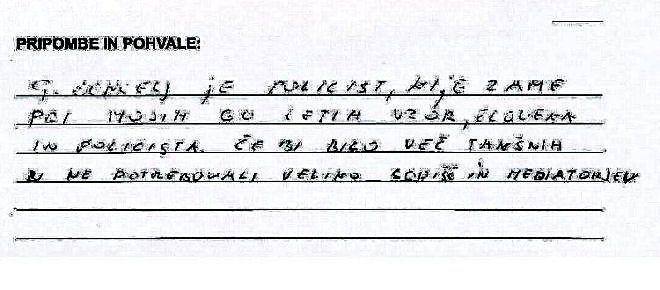 PRIPOMBE IN POHVALE:
G. JE POLICIST, KI JE ZAME
PRI MOJIH 60 LETIH VZOR, ČLOVEKA
IN POLICISTA. ČE BI BILO VEČ TAKŠNIH
NE POTREBOVALI VELIKO SODIŠČ IN MEDIATORJEV